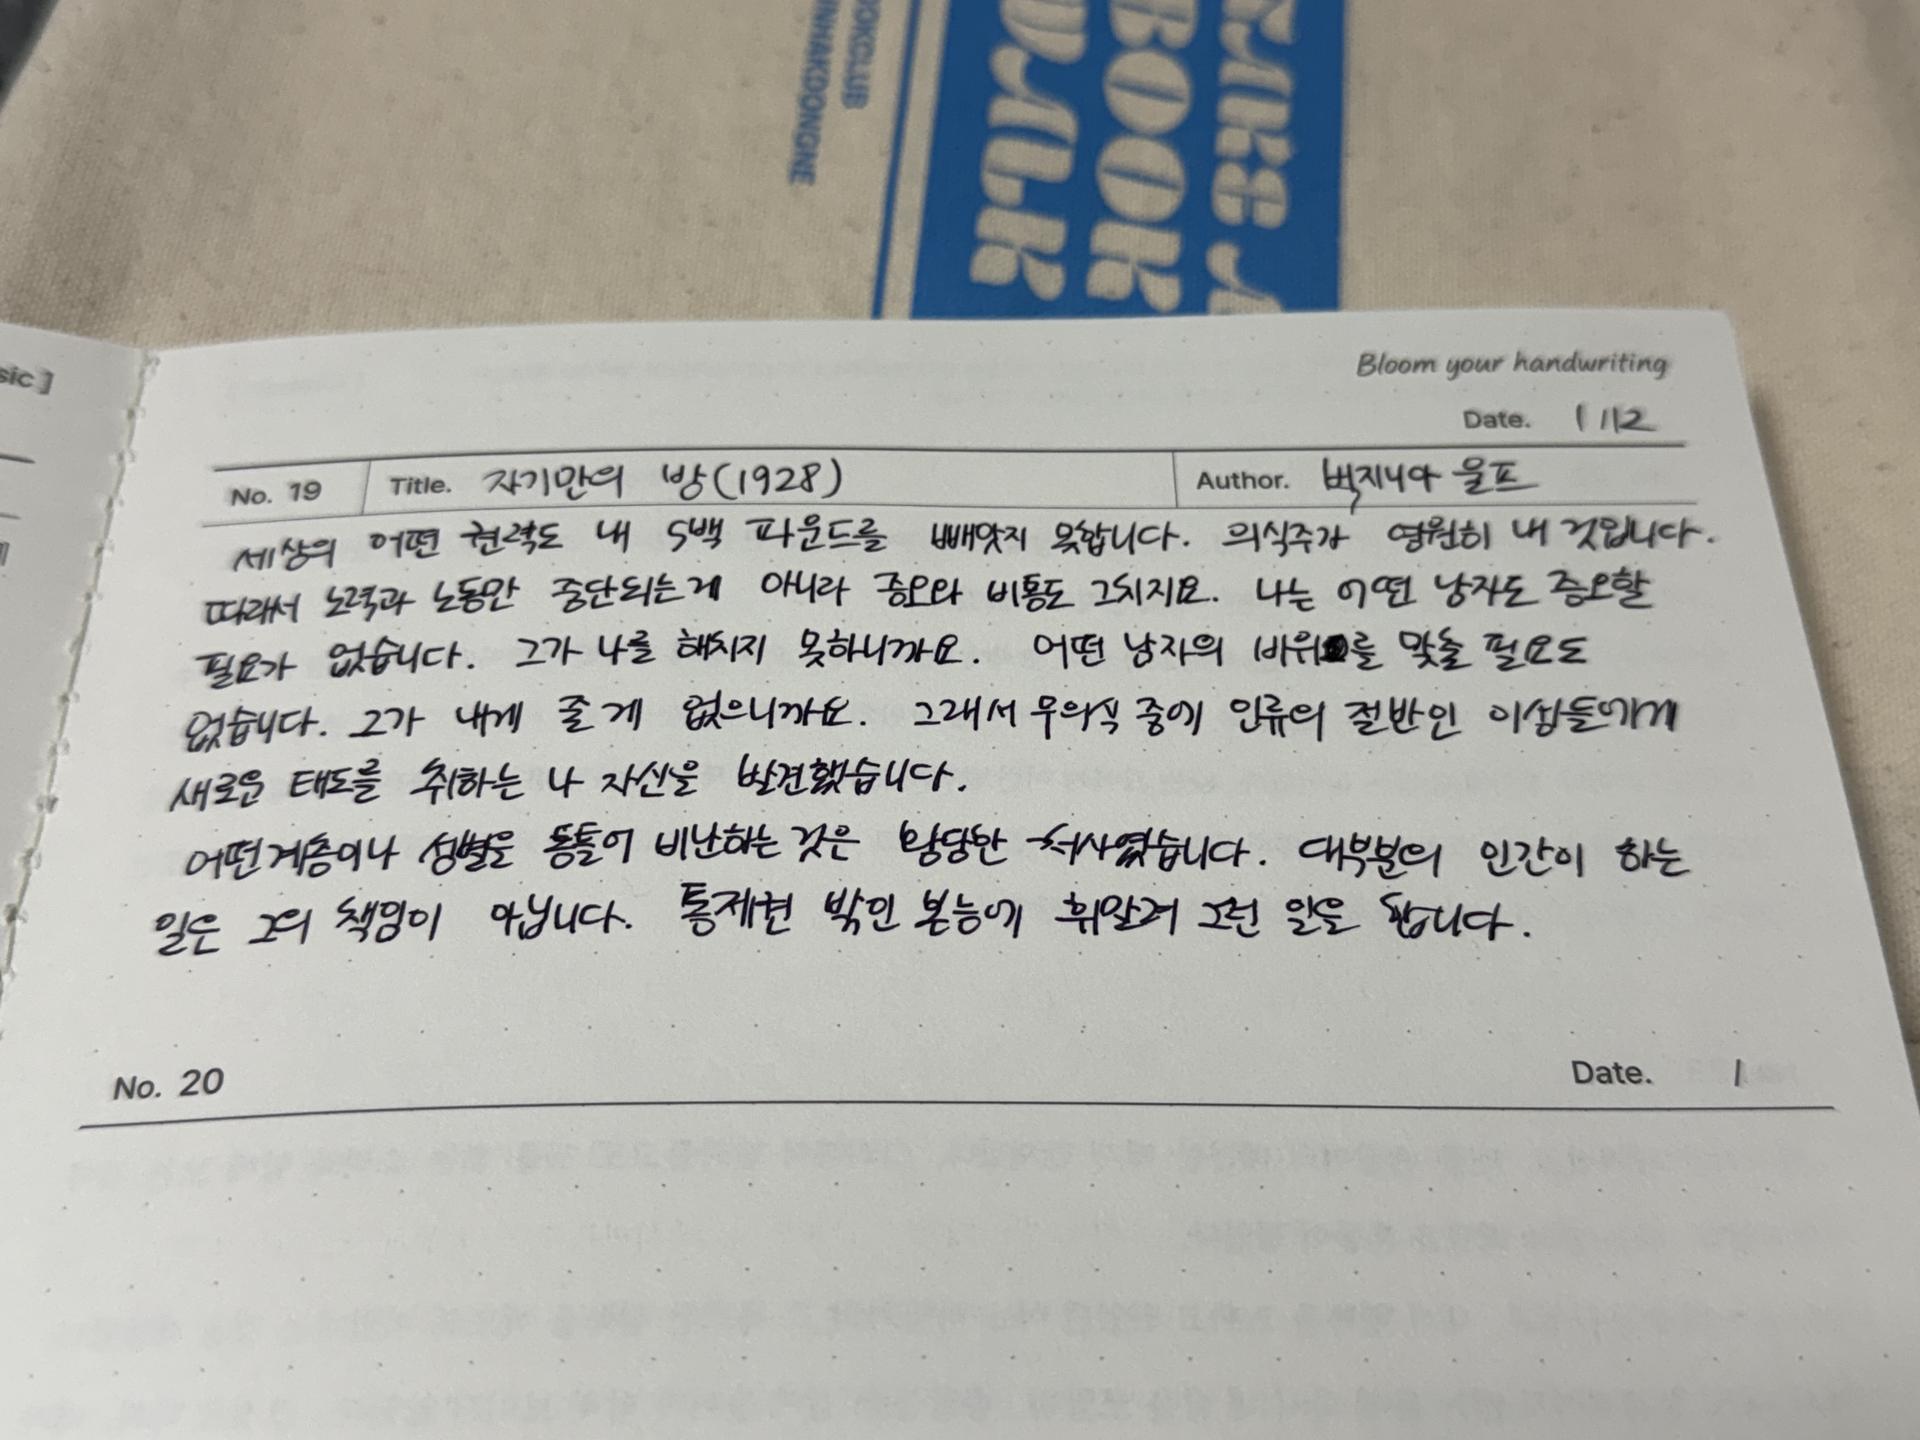 TAKE A
BOOK
WALK
BOOKCLUB
MINNAKDONGNE
Bloom your handwriting
Date. 1 / 12
No. 19 Title. 자기만의 방(1928) Author. 버지니아 울프
세상의 어떤 권력도 내 5백 파운드를 빼앗지 못합니다. 의식주가 영원히 내 것입니다.
따라서 노력과 노동만 중단되는게 아니라 증오와 비통도 그치지요. 나는 어떤 남자도 증오할
필요가 없습니다. 그가 나를 해치지 못하니까요. 어떤 남자의 바위를 맞출 필요도
없습니다. 그가 내게 줄 게 없으니까요. 그래서 무의식 중에 인류의 절반인 이성들에게
새로운 태도를 취하는 나 자신을 발견했습니다.
어떤 계층이나 성별을 통틀어 비난하는 것은 황당한 처사였습니다. 대부분의 인간이 하는
일은 그의 책임이 아닙니다. 통제권 밖인 본능에 휘말려 그런 일을 합니다.
No. 20 Date. /
sic]